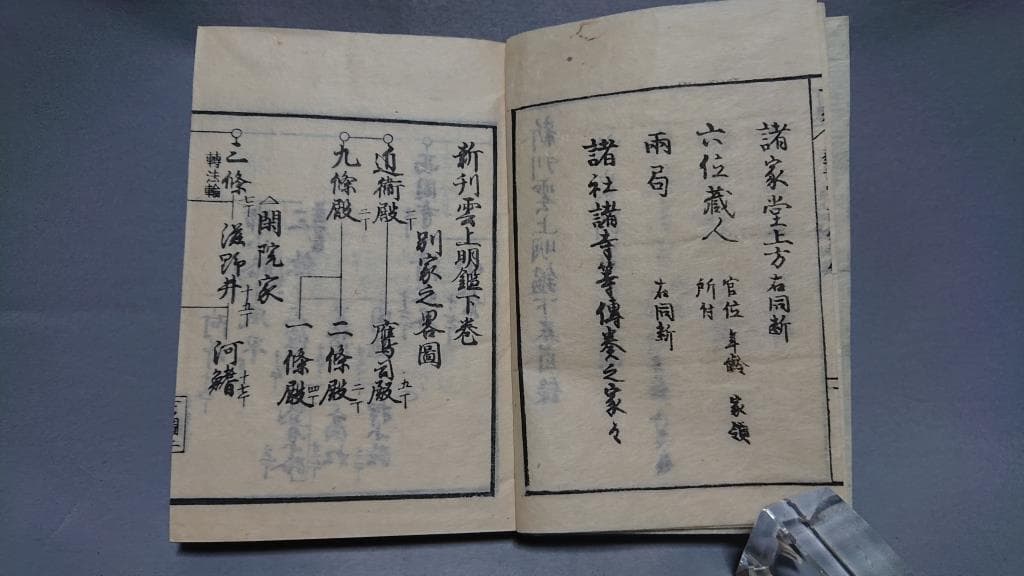 諸家堂上方 右同断
六位蔵人 官位 年齢 家領
所付
兩局 右同断
諸社諸寺等傳奏之家々
新刊雲上明鑑下巻
別家之畧圖
近衛殿 二丁 鷹司殿 五丁
九條殿 二丁 二條殿 二丁
一條殿 四丁
閑院家
三條 七丁 滋野井 十九丁 河鰭 十七丁
轉法輪